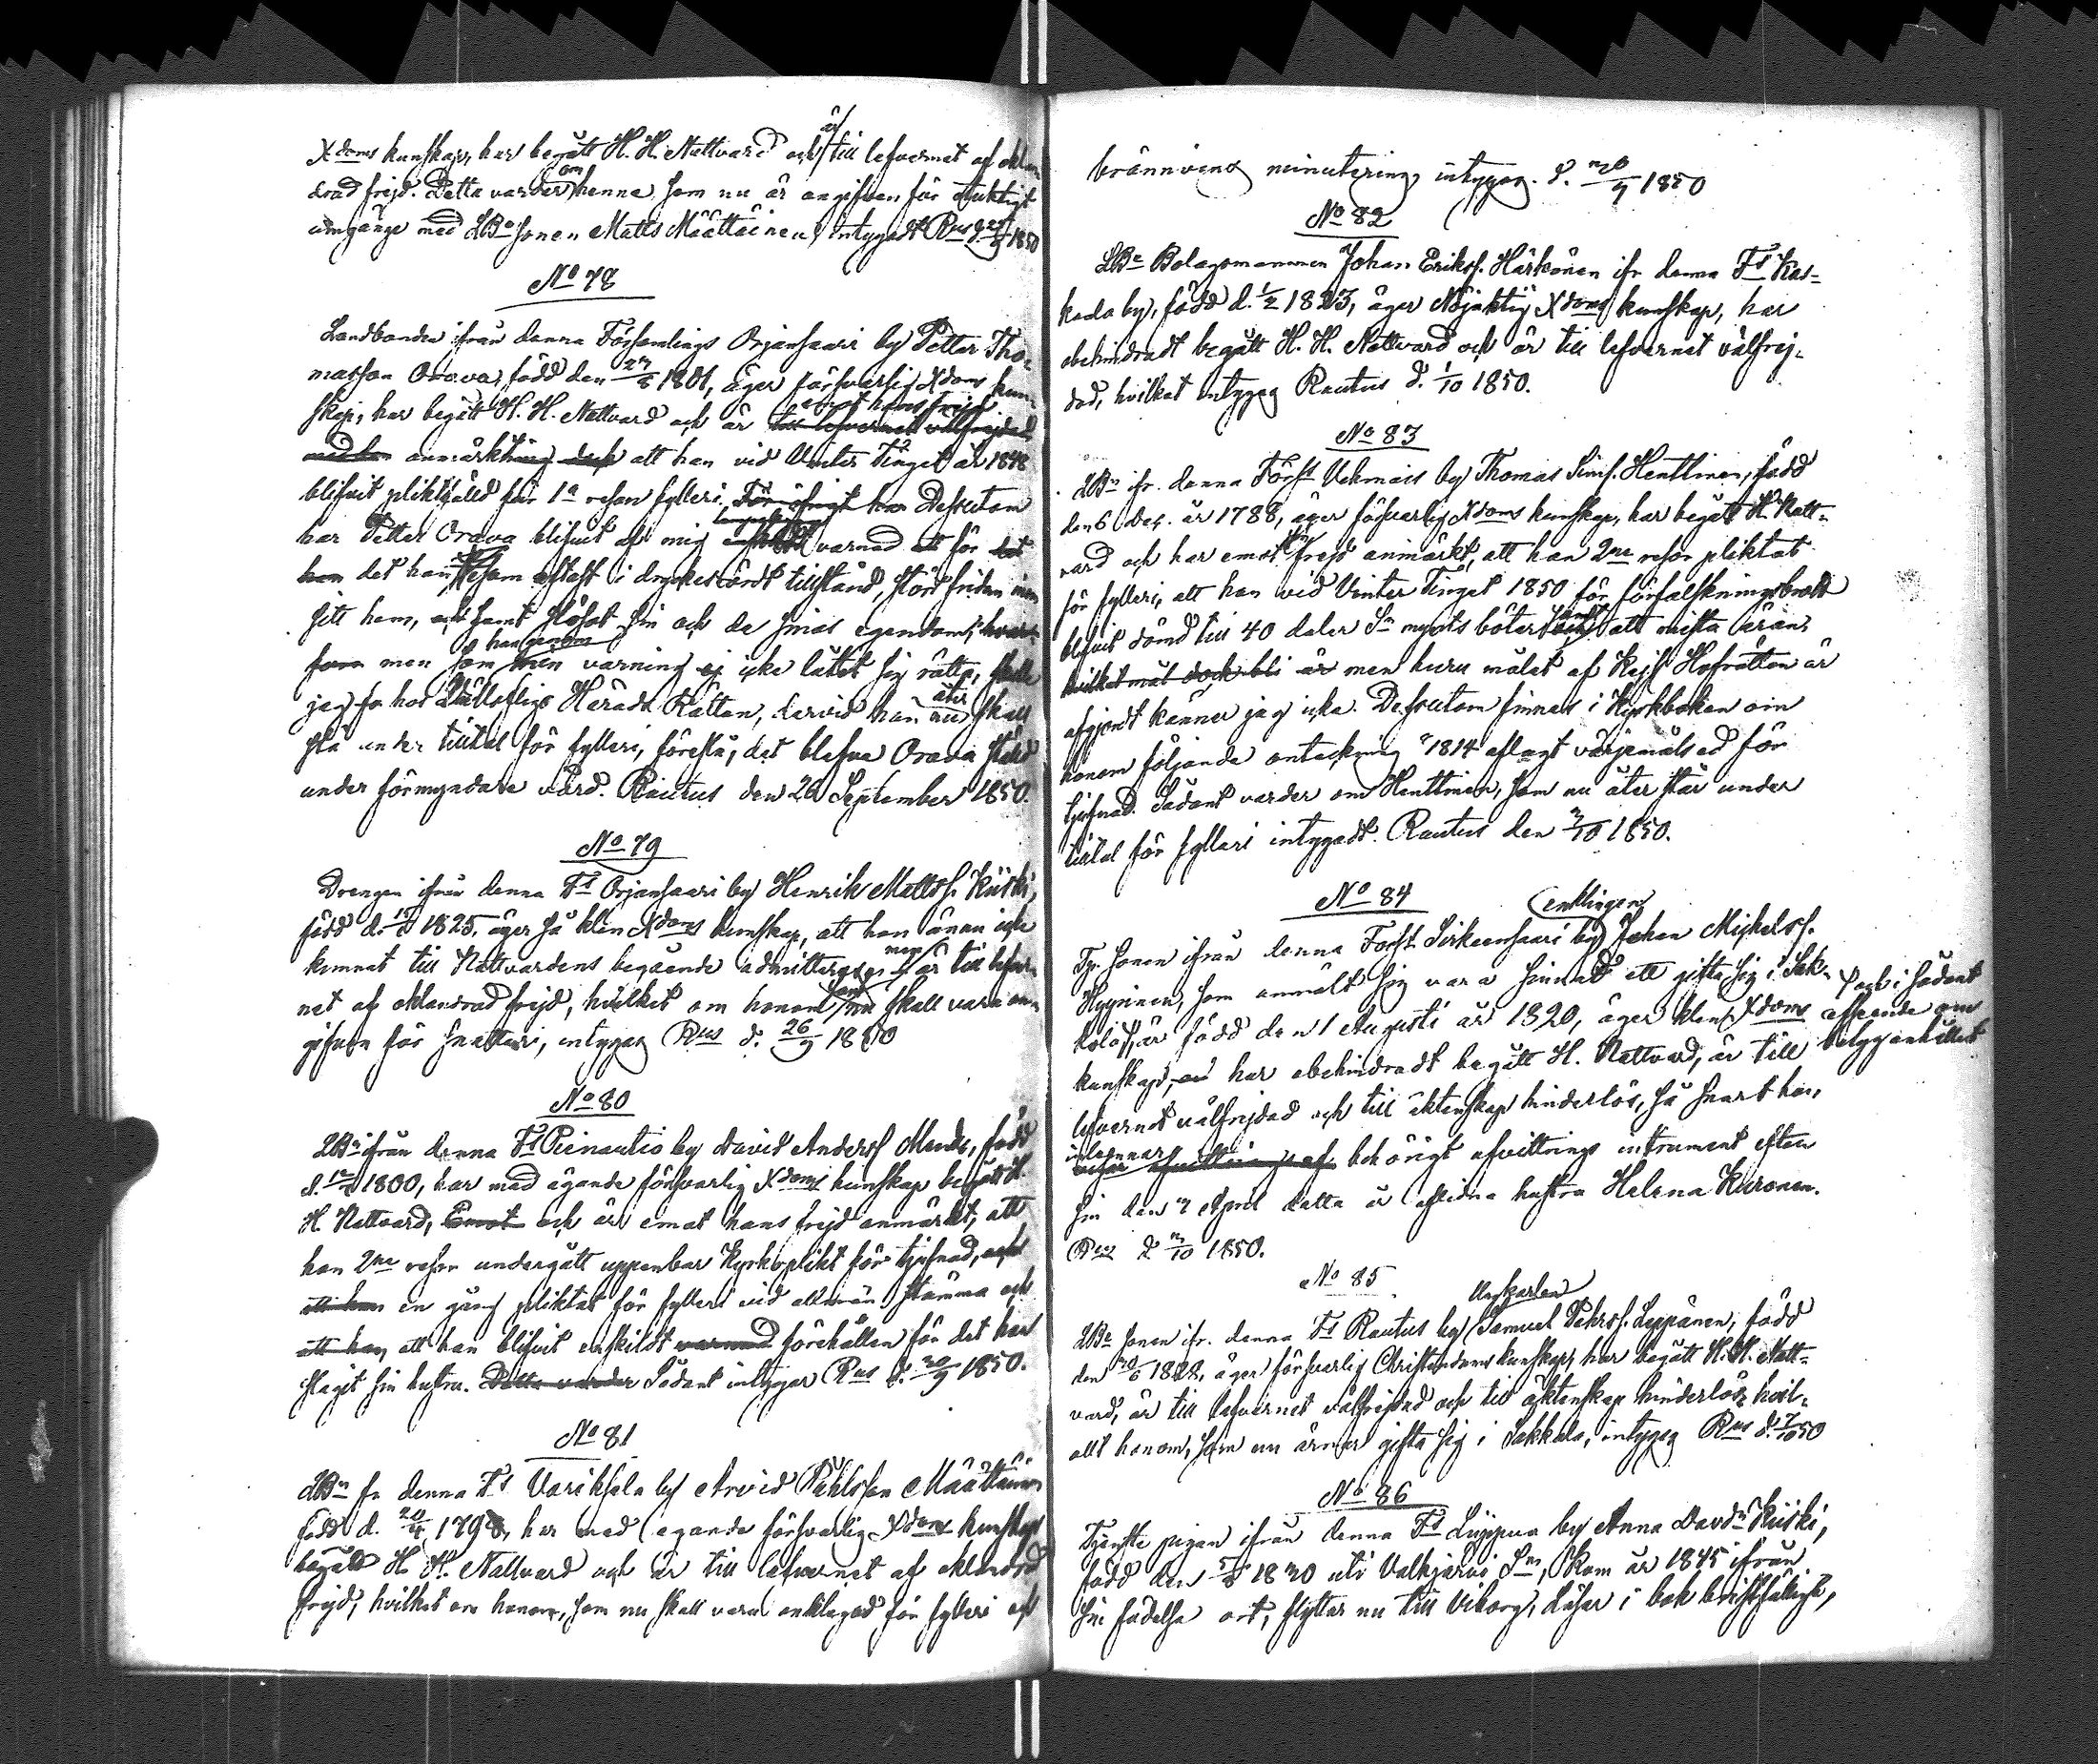 Xdoms kunskap, har begått H. H. Nattvard och är till lefvernet af oklan-
drad frejd. Detta varder om henne, som nu är angifven för otuktigt
umgänge med LBo sonen Matts Määttäinen, intygadt Rus d. 1850
No 78
Landbonden ifrån denna Församlings Orjansaari by Petter Tho-
masson Orava, född den 1801, äger försvarlig Xdoms kun-
skap, har begått H. H. Nattvard och är till lefvernet välfrejdad emot hans frejd
anmärkning dock att han vid Vinter Tinget år 1848
blifvit pliktfälld för 1a resan fylleri. För öfrigt har Dessutom
har Petter Orava blifvit af mig enskildt varnad att för det
han det han som oftast i dryckesvördt tillstånd, stört friden inom
sitt hem, och samt slösat sin och de sinas egendom,
men som han genom min varning ej icke låtit sig rätta, skulle
jag för hos Vällofliga Härads Rätten, dervid han nu åter skall
stå under tilltal för fylleri, föreslå, det blefve Orava ställd
under förmyndare vård. Rautus den 26 September 1850.
No 79
Drengen ifrån denna Fs Orjansaari by Henrik Mattss. Kiiski,
född d. 1825, äger så klen Xdoms kunskap, att han ännu icke
kunnat till Nattvardens begående admitteras, men är till lefver-
net af oklandrad frejd, hvilket om honom, som nu skall vara an-
gifven för snatteri, intygas Rus d. 26/9 1850
No 80
LBn ifrån denna Fs Pienautio by David Anderss Mende, född
d. 1800, har med ägande försvarlig Xdoms kunskap begått H.
H. Nattvard, Emot och är emot hans frejd anmärkt, att
han 2ne resor undergått uppenbar Kyrkoplikt för tjufnad, och
att han en gång pliktat för fylleri vid allmän stämma och
att han att han blifvit enskildt varnad förehållen för det han
slagit sin hustru. Detta varder Sådant intygar Rus d. 30/9 1850.
No 81
LBn fr denna Fs Variksela by Arvid Påhlsson Määttäinen
född d. 20/4 1798, har med egande försvarlig Xdoms kunskap
begått H. H. Nattvard och är till lefvernet af oklandrad
frejd, hvilket om honom, som nu skall vara anklagad för fylleri och
brännvins minutering intygas. d. 30/9 1850
No 82
LBo Bolagsmannen Johan Erikss. Härkönen ifr denna Fs Kas-
kala by, född d. 1/2 1823, äger Nöjaktig Xdoms kunskap, har
obehindradt begått H. H. Nattvard och är till lefvernet välfrej-
dad, hvilket intygas Rautus d. 1/10 1850.
No 83
LBn ifr. denna Förs Vehmais by Thomas Sims. Henttinen, född
den 6 Dec. år 1788, äger försvarlig Xdoms kunskap, har begått H. Natt-
vard och har emot sin frejd anmärkt, att han 2ne resor pliktat
för fylleri, att han vid Vinter Tinget 1850 för förfalskningsbrott
blifvit dömd till 40 daler Sr mynts böter samt att mista äran,
hvilket mål dock bli är men huru målet af Kejs Hofrätten är
afgjordt känner jag icke. Dessutom finnes i Kyrkboken om
honom följande anteckning "1814 aflagt värjemåls ed för
tjufnad. Sådant varder om Henttinen, som nu åter står under
tilltal för fylleri intygadt. Rautus den 3/10 1850.
No 84
Tp. Sonen ifrån denna Förs Sirkeensaari by, enklingen Johan Mickelss.
Hyyninen, som anmält sig vara sinnad att gifta sig i Sak-
kola, är född den 1 Augusti år 1820, äger klen Xdoms
kunskap, har obehindradt begått H. Nattvard, är till
lefvernet välfrejdad och till äktenskap hinderlös, så snart han,
och i sådant
afseende om
betyg anhållit
inlemnar behörigt afvittrings instrument efter
sin den 7 April detta år aflidna hustru Helena Kuronen.
Rus d 3/10 1850.
No 85
LBo sonen ifr. denna Fs Rautus by Ungkarlen Samuel Pehrss. Leppänen, född
den 1828, äger försvarlig Christendoms kunskap, har begått H. H. Natt-
vard, är till lefvernet välfrejdad och till äktenskap hinderlös, hvil-
ket honom, som nu ärnar gifta sig i Sakkola, intygas Rus d. 7/10 50
No 86
Tjenste pigan ifrån denna Fs Liippua by Anna Davdr Kiiski,
född den 1830 uti Valkjärvi Sn, kom år 1845 ifrån
sin födelse ort, flyttar nu till Viborg, Läser i bok bristfälligt,